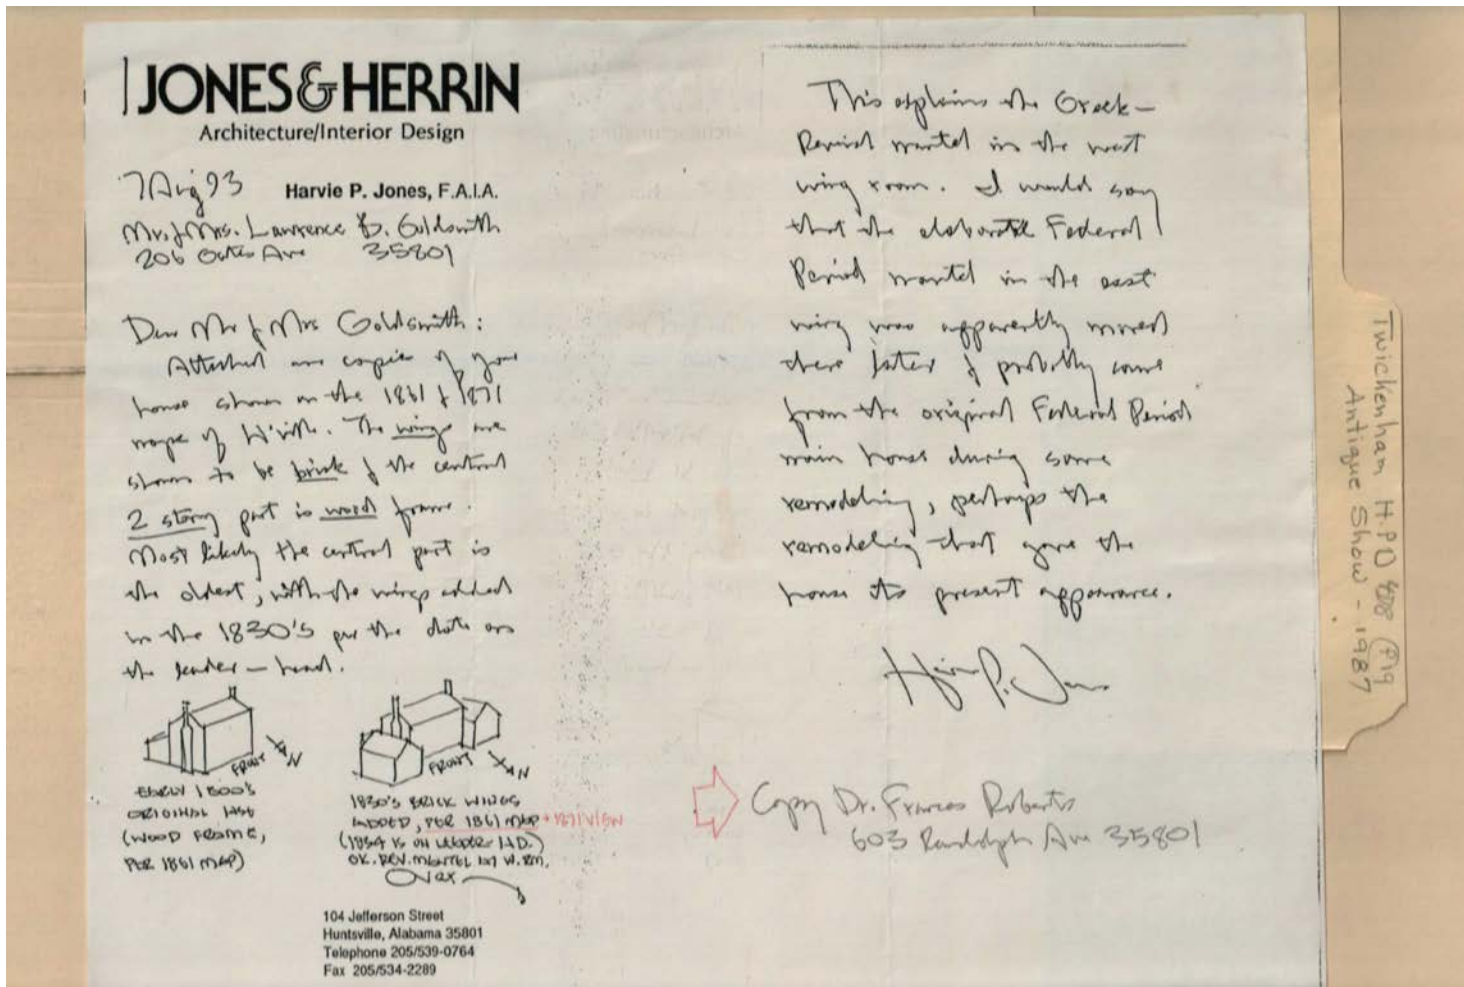 JONES & HERRIN
Architecture/Interior Design
7 Aug 93 Harvie P. Jones, F.A.I.A.
Mr. & Mrs. Lawrence B. Goldsmith
206 Gates Ave 35801
Dear Mr & Mrs Goldsmith:
Attached are copies of your
house shown on the 1861 & 1871
maps of H'ville. The wings are
shown to be brick & the central
2 story part is wood frame.
Most likely the central part is
the oldest, with the wings added
in the 1830's per the date on
the leader-head.
FRONT N
EARLY 1800's
ORIGINAL HSE
(WOOD FRAME,
PER 1861 MAP)
FRONT N
1830'S BRICK WINGS
ADDED, PER 1861 MAP + 1871 VIEW
(1834 IS ON LEADER-HD.)
GK. REV. MANTEL IN W. RM.
Over
104 Jefferson Street
Huntsville, Alabama 35801
Telephone 205/539-0764
Fax 205/534-2289
This explains the Greek-
Revival mantel in the west
wing room. I would say
that the elaborate Federal
Period mantel in the east
wing was apparently moved
there later & probably came
from the original Federal Period
main house during some
remodeling, perhaps the
remodeling that gave the
house its present appearance.
Harvie P. Jones
Copy Dr. Frances Roberts
603 Randolph Ave 35801
Twickenham H.P.D P19
Antique Show - 1987